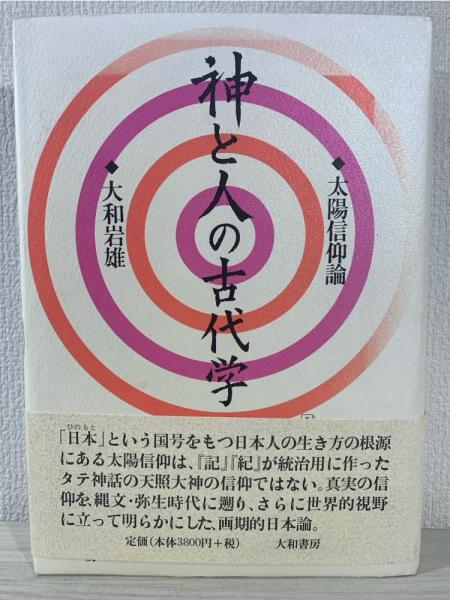 神と人の古代学
◆太陽信仰論
◆大和岩雄
ひのもと
「日本」という国号をもつ日本人の生き方の根源
にある太陽信仰は、『記』『紀』が統治用に作った
タテ神話の天照大神の信仰ではない。真実の信
仰を、縄文・弥生時代に遡り、さらに世界的視野
に立って明らかにした、画期的日本論。
定価(本体3800円+税) 大和書房